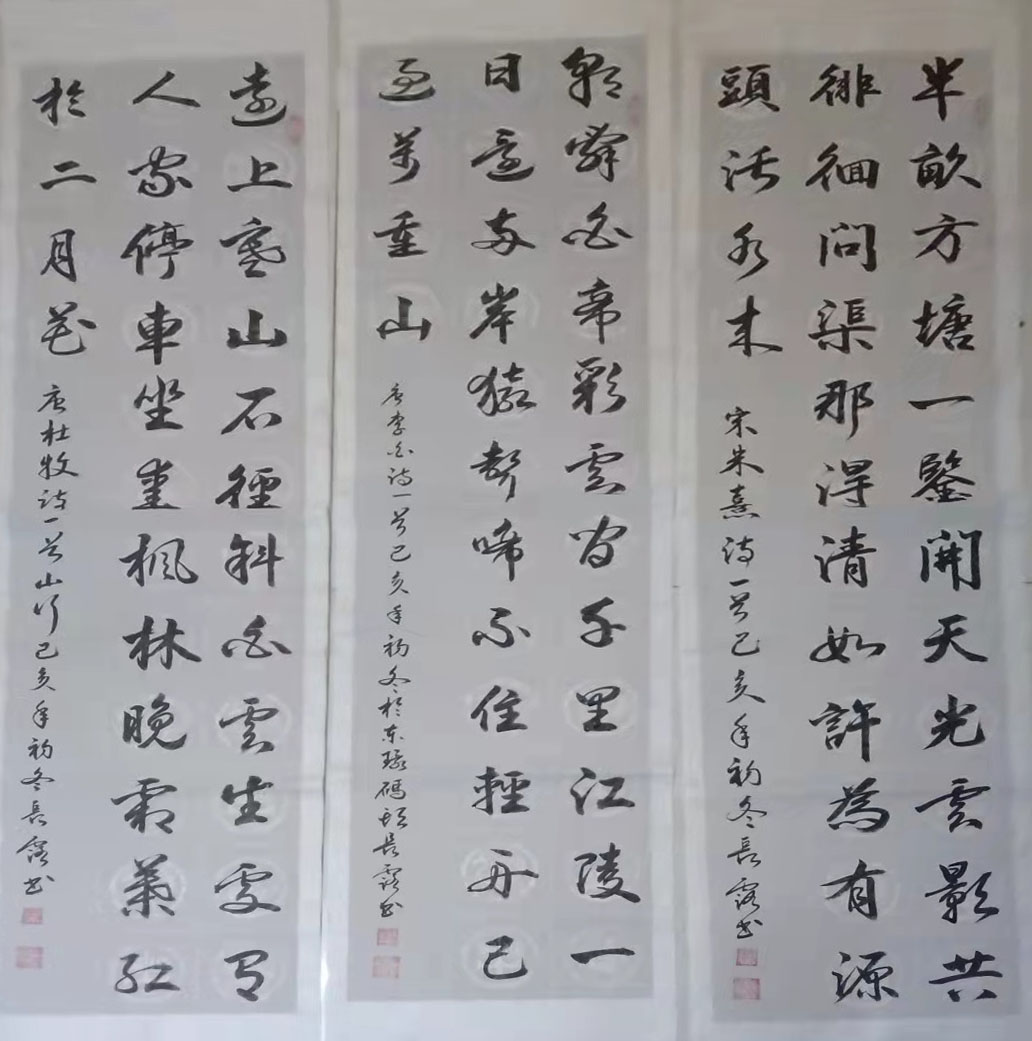 半畝方塘一鑒開天光雲影共
徘徊問渠那得清如許為有源
頭活水來 宋朱熹诗一首己亥年初冬長露书
朝辭白帝彩雲間千里江陵一
日還兩岸猿聲啼不住輕舟已
過萬重山 唐李白诗一首己亥年初冬於东環碼頭長露书
遠上寒山石徑斜白雲生處有
人家停車坐愛楓林晚霜葉紅
於二月花 唐杜牧诗一首山行己亥年初冬長露书